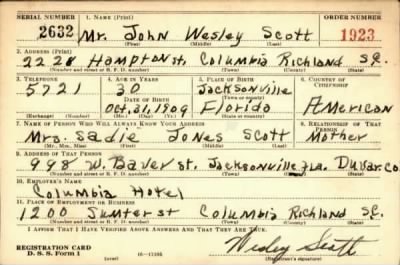 SERIAL NUMBER 1. NAME (Print) ORDER NUMBER
2632 Mr. John Wesley Scott 1923
(First) (Middle) (Last)
2. ADDRESS (Print)
2228 Hampton st. Columbia Richland S.C.
(Number and street or R. F. D. number) (Town) (County) (State)
3. TELEPHONE 4. AGE IN YEARS 5. PLACE OF BIRTH 6. COUNTRY OF CITIZENSHIP
5721 30 Jacksonville
DATE OF BIRTH (Town or county)
Oct. 21, 1909 Florida American
(Exchange) (Number) (Mo.) (Day) (Yr.) (State or country)
7. NAME OF PERSON WHO WILL ALWAYS KNOW YOUR ADDRESS 8. RELATIONSHIP OF THAT PERSON
Mrs. Sadie Jones Scott Mother
(Mr., Mrs., Miss) (First) (Middle) (Last)
9. ADDRESS OF THAT PERSON
W. st. Jacksonville Fla. Duvar. Co.
(Number and street or R. F. D. number) (Town) (County) (State)
10. EMPLOYER'S NAME
Columbia Hotel
11. PLACE OF EMPLOYMENT OR BUSINESS
1200 Sumter st Columbia Richland S.C.
(Number and street or R. F. D. number) (Town) (County) (State)
I AFFIRM THAT I HAVE VERIFIED ABOVE ANSWERS AND THAT THEY ARE TRUE.
REGISTRATION CARD
D. S. S. Form 1 Wesley Scott
(over) (Registrant's signature)